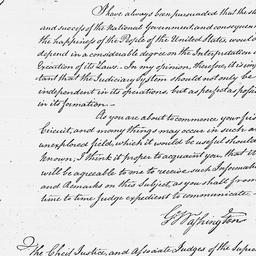 I have always been persuaded that the sta
and success of the National Government, and consequent
the happiness of the People of the United States, would
depend in a considerable degree on the Interpretation a
Execution of its Laws. In my opinion, therefore, it is im
tant that the Judiciary System should not only be
independent in its operations, but as perfect as possi
in its formation.
As you are about to commence your firs
Circuit, and many things may occur in such an
unexplored field, which it would be useful should
known; I think it proper to acquaint you, that it
will be agreeable to me to receive such Informat
and Remarks on this Subject, as you shall from
time to time Judge expedient to communicate.
G. Washington
The Chief Justice, and Associate Judges of the Supre